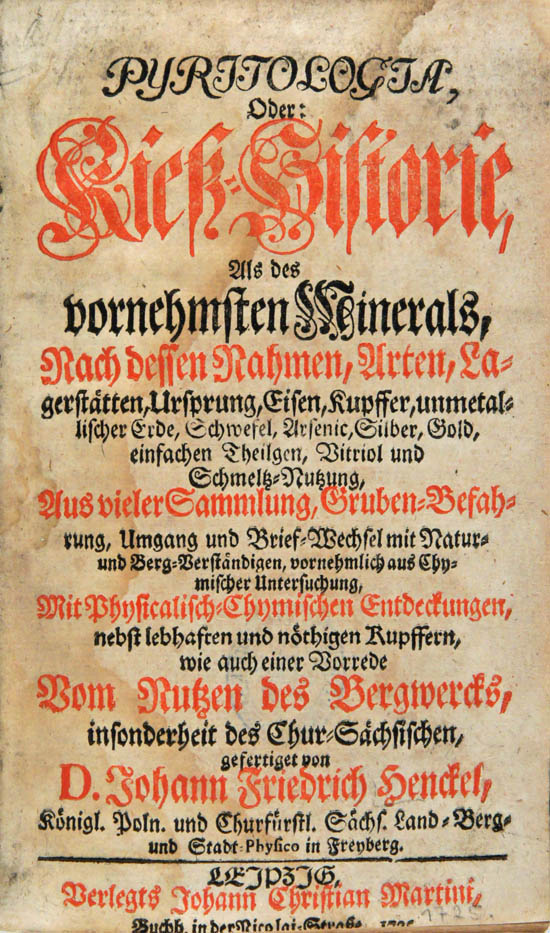 PYRITOLOGIA,
Oder:
Kieß-Historie,
Als des
vornehmsten Minerals,
Nach dessen Nahmen, Arten, La-
gerstätten, Ursprung, Eisen, Kupffer, unmetal-
lischer Erde, Schwefel, Arsenic, Silber, Gold,
einfachen Theilgen, Vitriol und
Schmeltz-Nutzung,
Aus vieler Sammlung, Gruben-Befah-
rung, Umgang und Brief-Wechsel mit Natur-
und Berg-Verständigen, vornehmlich aus Chy-
mischer Untersuchung,
Mit Physicalisch-Chymischen Entdeckungen,
nebst lebhaften und nöthigen Kupffern,
wie auch einer Vorrede
Vom Nutzen des Bergwercks,
insonderheit des Chur-Sächsischen,
gefertiget von
D. Johann Friedrich Henckel,
Königl. Poln. und Churfürstl. Sächs. Land-Berg-
und Stadt-Physico in Freyberg.
LEIPZIG,
Verlegts Johann Christian Martini,
Buchh. in der Nicolai-Straße 1725
1725.